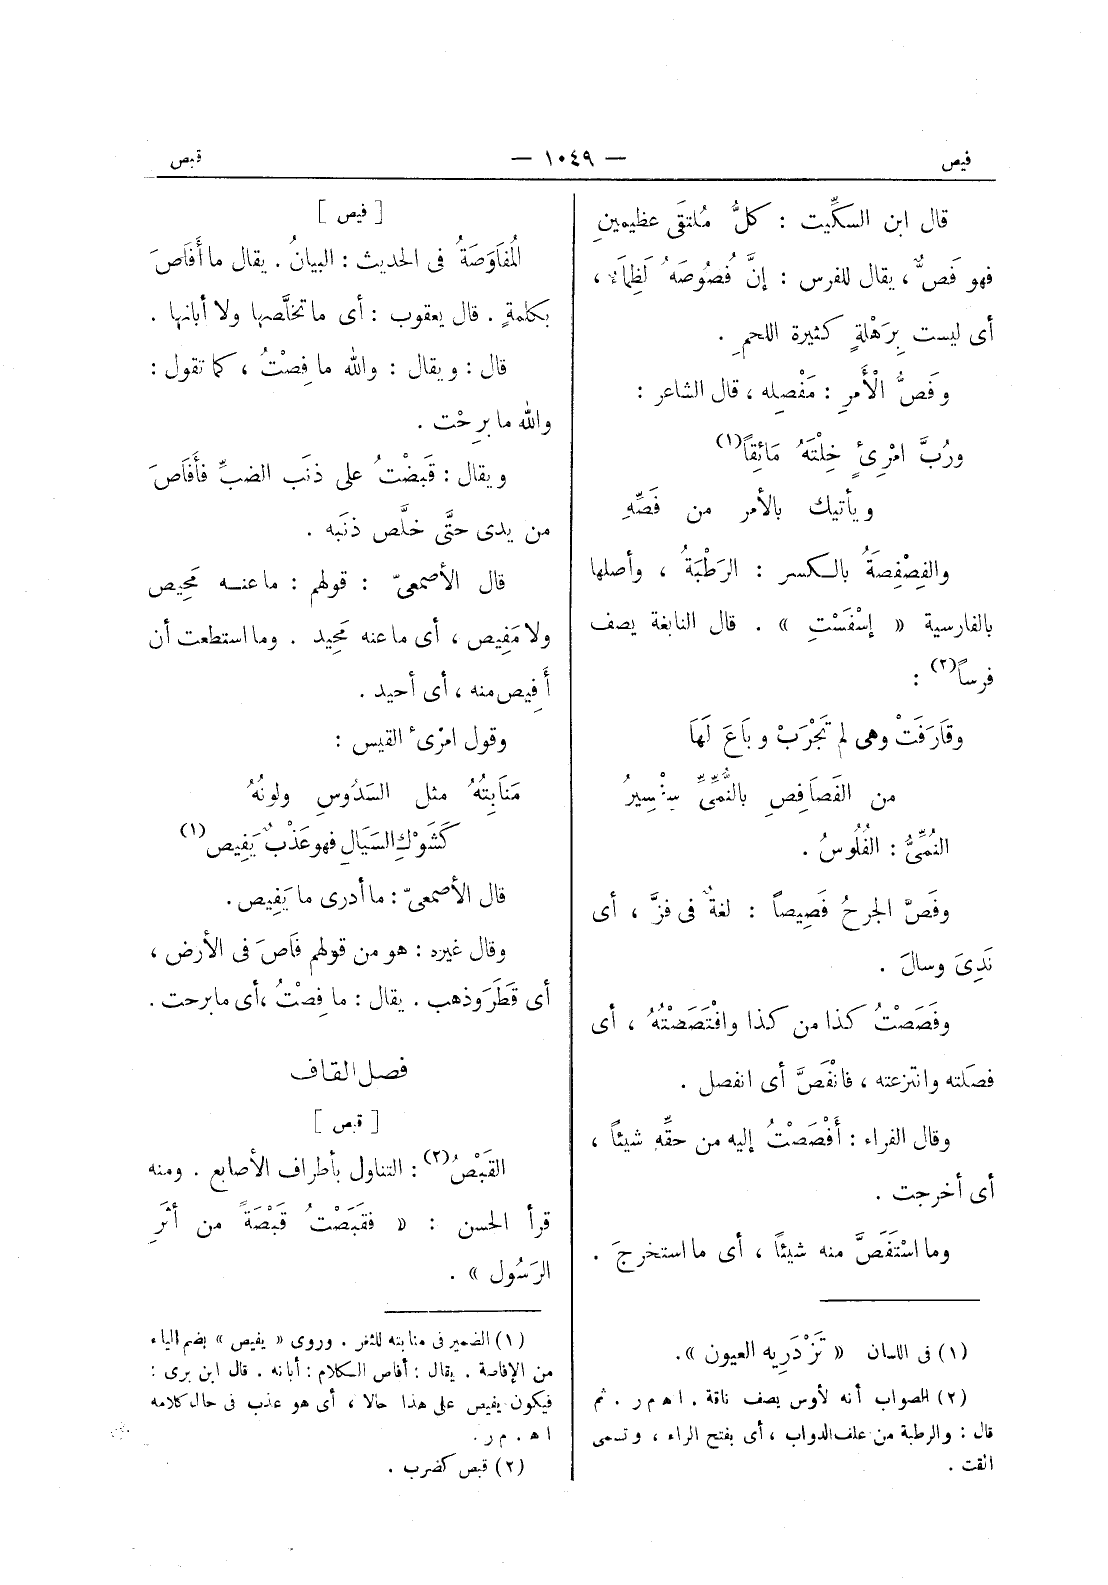 فيص — ١٠٤٩ — قبص
قال ابن السكِّيت : كلُّ مُلتقَى عظيمينِ
فهو فَصٌّ ، يقال للفرس : إنَّ فُصُوصَهُ لَظِمَاءٌ ،
أى ليست بِرَهْلةٍ كثيرة اللحمِ .
وفَصُّ الْأَمرِ : مَفْصِله ، قال الشاعر :
ورُبَّ امْرِئٍ خِلْتَهُ مَائِقاً (١)
ويأتيك بالأمر من فَصِّهِ
والفِصْفِصَةُ بالكسر : الرَطْبَةُ ، وأصلها
بالفارسية « إسْفَسْتِ » . قال النابغة يصف
فرساً (٢) :
وقَارَفَتْ وهى لم تَجْرَبْ وبَاعَ لَهَا
من الفَصَافِصِ بالنُّمِّىِّ سِفْسِيرُ
النُمِّىُّ : الفُلُوسُ .
وفَصَّ الجرحُ فَصِيصاً : لغةٌ فى فزَّ ، أى
نَدِىَ وسالَ .
وفَصَصْتُ كذا من كذا وافْتَصَصْتُهُ ، أى
فصَلته وانتزعته ، فانْفَصَّ أى انفصل .
وقال الفراء : أَفْصَصْتُ إليه من حقِّهِ شيئاً ،
أى أخرجت .
وما اسْتَفَصَّ منه شيئاً ، أى ما استخرجَ .
(١) فى اللسان « تَزْدَرِيه العيون » .
(٢) الصواب أنه لأوس يصف ناقة . اهـ م ر . ثم
قال : والرطبة من علف الدواب ، أى بفتح الراء ، وتسمى
القت .
[ فيص ]
المُفَاوَصَةُ فى الحديث : البيانُ . يقال ما أَفَاصَ
بكلمةٍ . قال يعقوب : أى ما تخلَّصها ولا أبانها .
قال : ويقال : والله ما فِصْتُ ، كما تقول :
والله ما بَرِحْت .
ويقال : قَبَضْتُ على ذنَب الضبِّ فأَفَاصَ
من يدى حتَّى خلَّص ذنَبه .
قال الأصمعىّ : قولهم : ما عنه مَحِيص
ولا مَفِيص ، أى ما عنه مَحِيد . وما استطعت أن
أَفِيص منه ، أى أحيد .
وقول امرئ القيس :
مَنَابِتُهُ مثل السَدُوسِ ولونُهُ
كَشَوْكِ السَيَالِ فهو عَذْبٌ يَفِيص (١)
قال الأصمعىّ : ما أدرى ما يَفِيص .
وقال غيره : هو من قولهم فَاصَ فى الأرض ،
أى قَطَرَ وذهب . يقال : ما فِصْتُ ، أى ما برحت .
فصل القاف
[ قبص ]
القَبْصُ (٢) : التناول بأطراف الأصابع . ومنه
قرأ الحسن : « فقَبَصْتُ قَبْصَةً من أَثَرِ
الرَسُول » .
(١) الضمير فى منابته للثغر . وروى « يفيص » بضم الياء
من الإفاصة . يقال : أفاص الكلام : أبانه . قال ابن برى :
فيكون يفيص على هذا حالا ، أى هو عذب فى حال كلامه
اهـ . م ر .
(٢) قبص كضرب .